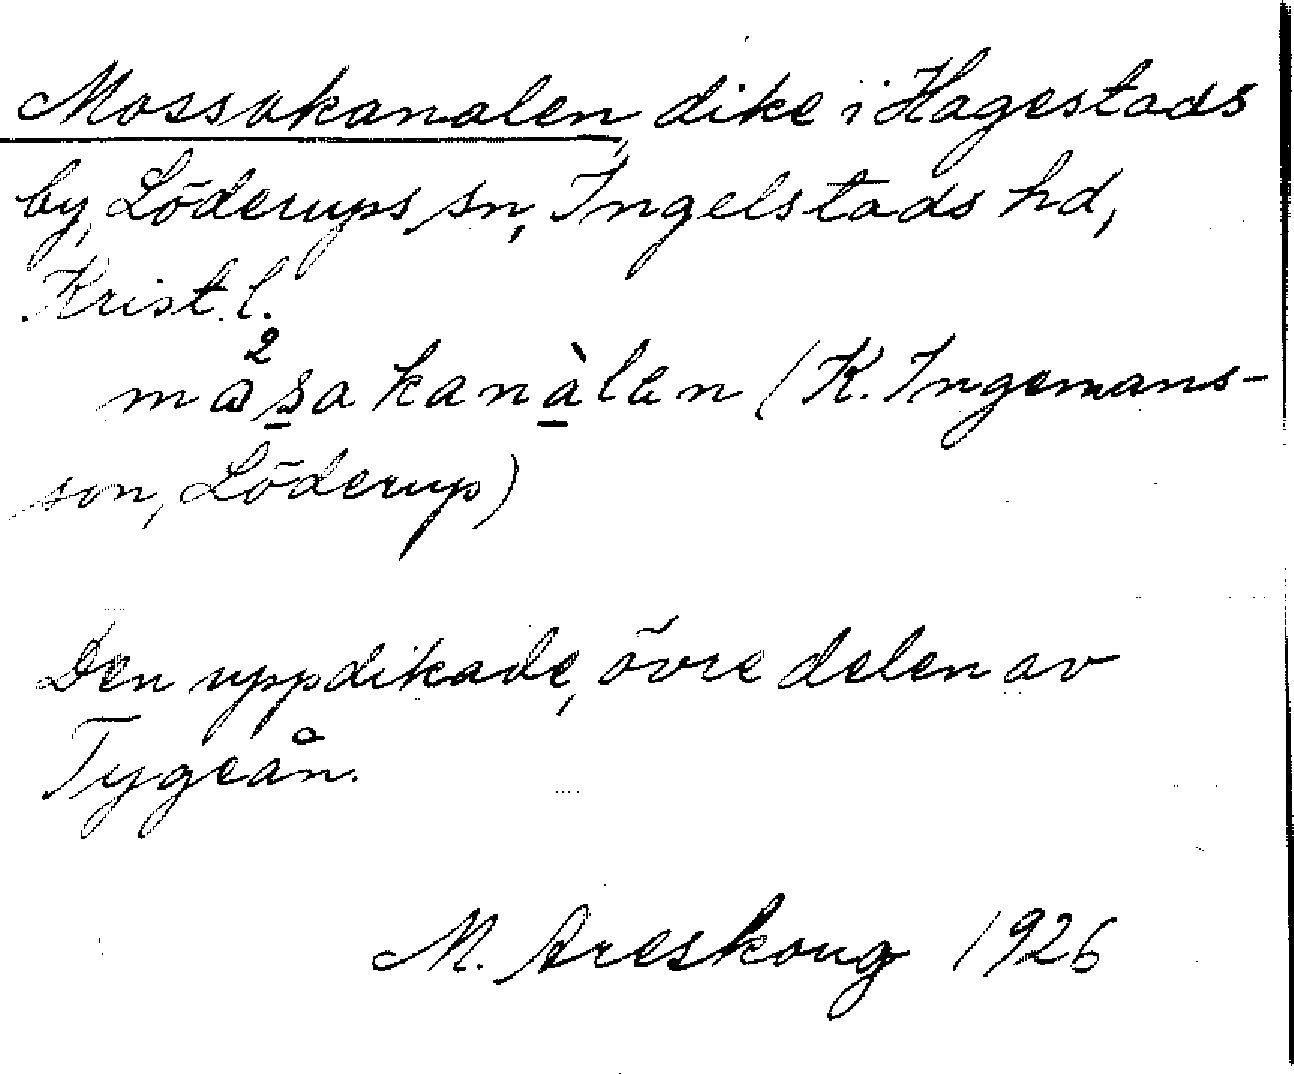 Mossakanalen, dike i Hagestads
by, Löderups sn, Ingelstads hd,
Krist. l.
måsa kanàlen (K. Ingemans-
son, Löderup)
Den uppdikade, övre delen av
Tygeån.
M. Areskoug 1926